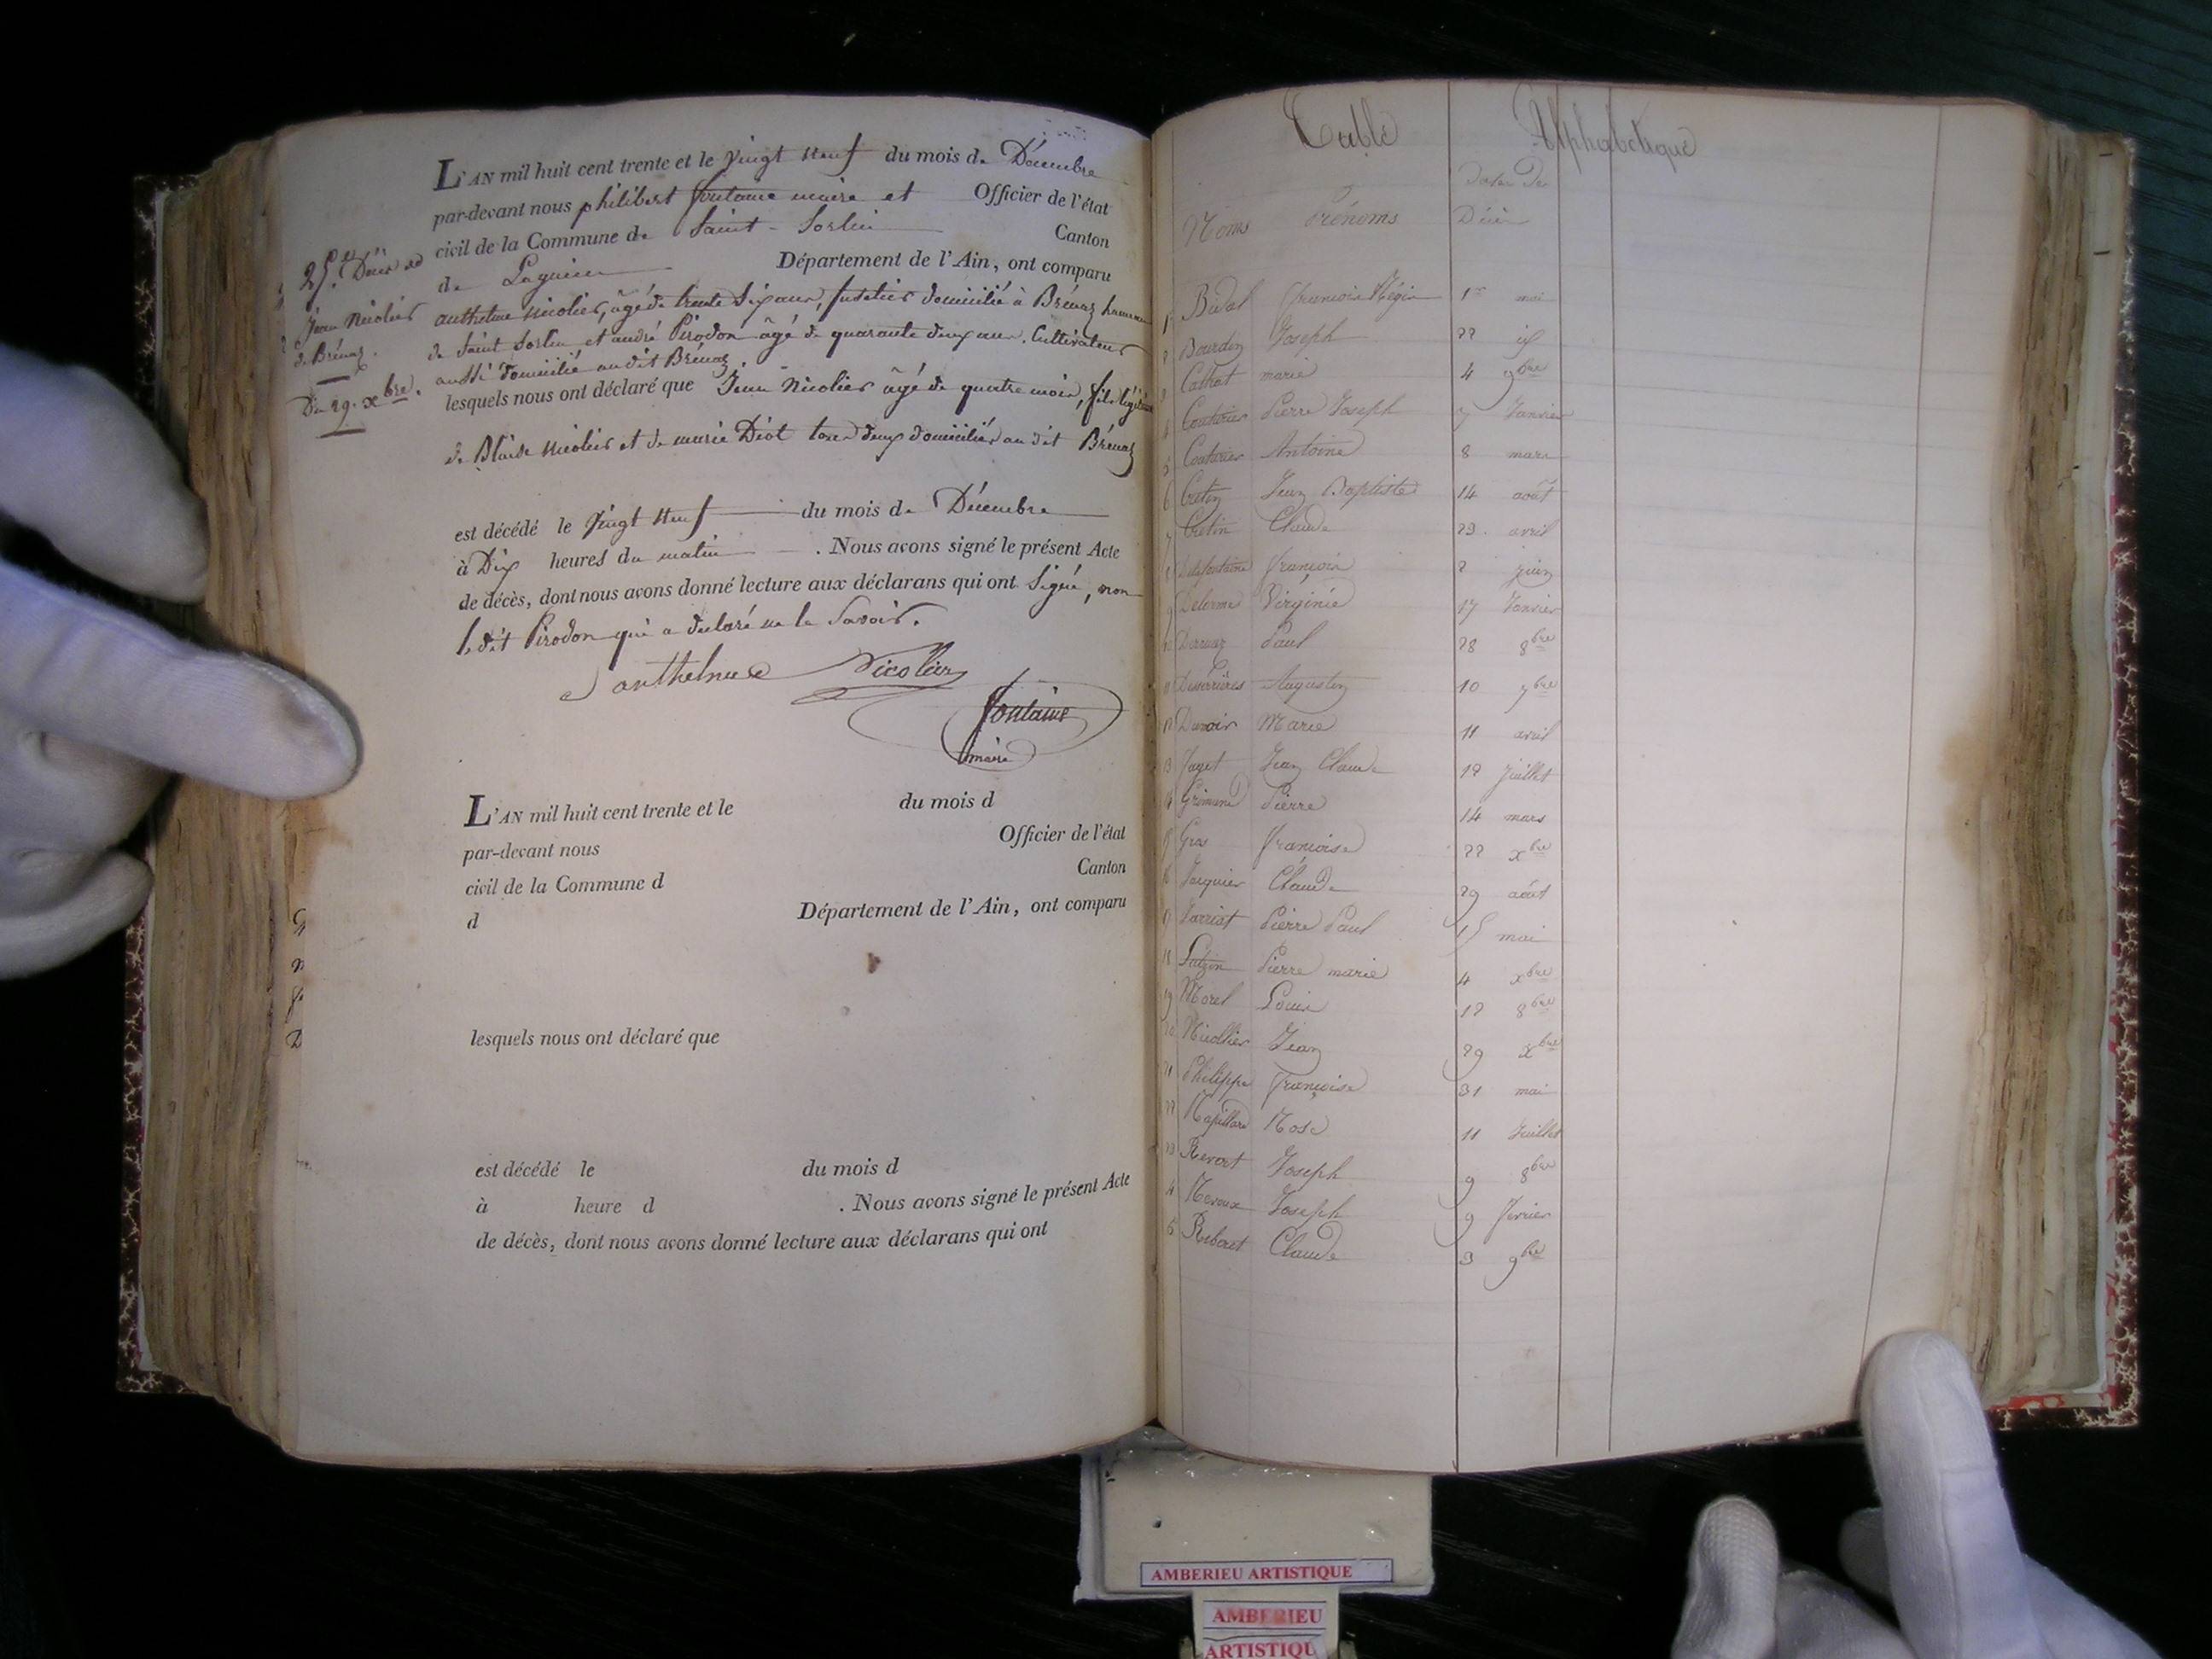 L'AN mil huit cent trente et le vingt neuf du mois de Décembre
par-devant nous philibert fontaine maire et Officier de l'état
civil de la Commune de Saint-Sorlin Canton
de Lagnieu Département de l'Ain, ont comparu
anthelme Nicolier, âgé de trente six ans, domicilié à Brénaz hameau
de Saint Sorlin et andré Pirodon âgé de quarante deux ans. Cultivateur
aussi domicilié au dit Brénaz.
lesquels nous ont déclaré que Jean Nicolier âgé de quatre mois, fils légitime
de Blaise Nicolier et de marie Diot tous deux domiciliés au dit Brénaz
est décédé le vingt neuf du mois de Décembre
à Dix heures du matin. Nous avons signé le présent Acte
de décès, dont nous avons donné lecture aux déclarans qui ont Signé, non
le dit Pirodon qui a déclaré ne le Savoir.
anthelme Nicolier
fontaine
maire
25.e Décès de
Jean Nicolier
de Brénaz.
Du 29. xbre.
L'AN mil huit cent trente et le du mois d
par-devant nous Officier de l'état
civil de la Commune d Canton
d Département de l'Ain, ont comparu
lesquels nous ont déclaré que
est décédé le du mois d
à heure d . Nous avons signé le présent Acte
de décès, dont nous avons donné lecture aux déclarans qui ont
Table Alphabétique
Noms Prénoms Dates de
Décès
1 Bidal françois Régis 1er mai
2 Bourdin Joseph 22 id
3 Calhat marie 4 9bre
4 Couturier Pierre Joseph 7 Janvier
5 Couturier Antoine 8 mars
6 Cretin Jean Baptiste 14 août
7 Cretin Claude 23. avril
8 Delafontaine françois 2 juin
9 Delorme Virginie 17 Janvier
10 Paul 28 8bre
11 Desserrières Augustin 10 7bre
12 Dunoir Marie 11 avril
13 fayet Jean Claude 12 juillet
14 Grimand Pierre 14 mars
15 Gros françoise 22 xbre
16 Jacquier Claude 29 août
17 Jarriat Pierre Paul 15 mai
18 Pierre marie 4 xbre
19 Morel Louis 12 8bre
20 Nicollier Jean 29 xbre
21 Philippe françoise 31 mai
22 Rapillard Rose 11 Juillet
23 Revert Joseph 9 8bre
4 Reveux Joseph 9 février
5 Riboret Claude 3 9bre
AMBERIEU ARTISTIQUE
AMBERIEU
ARTISTIQU